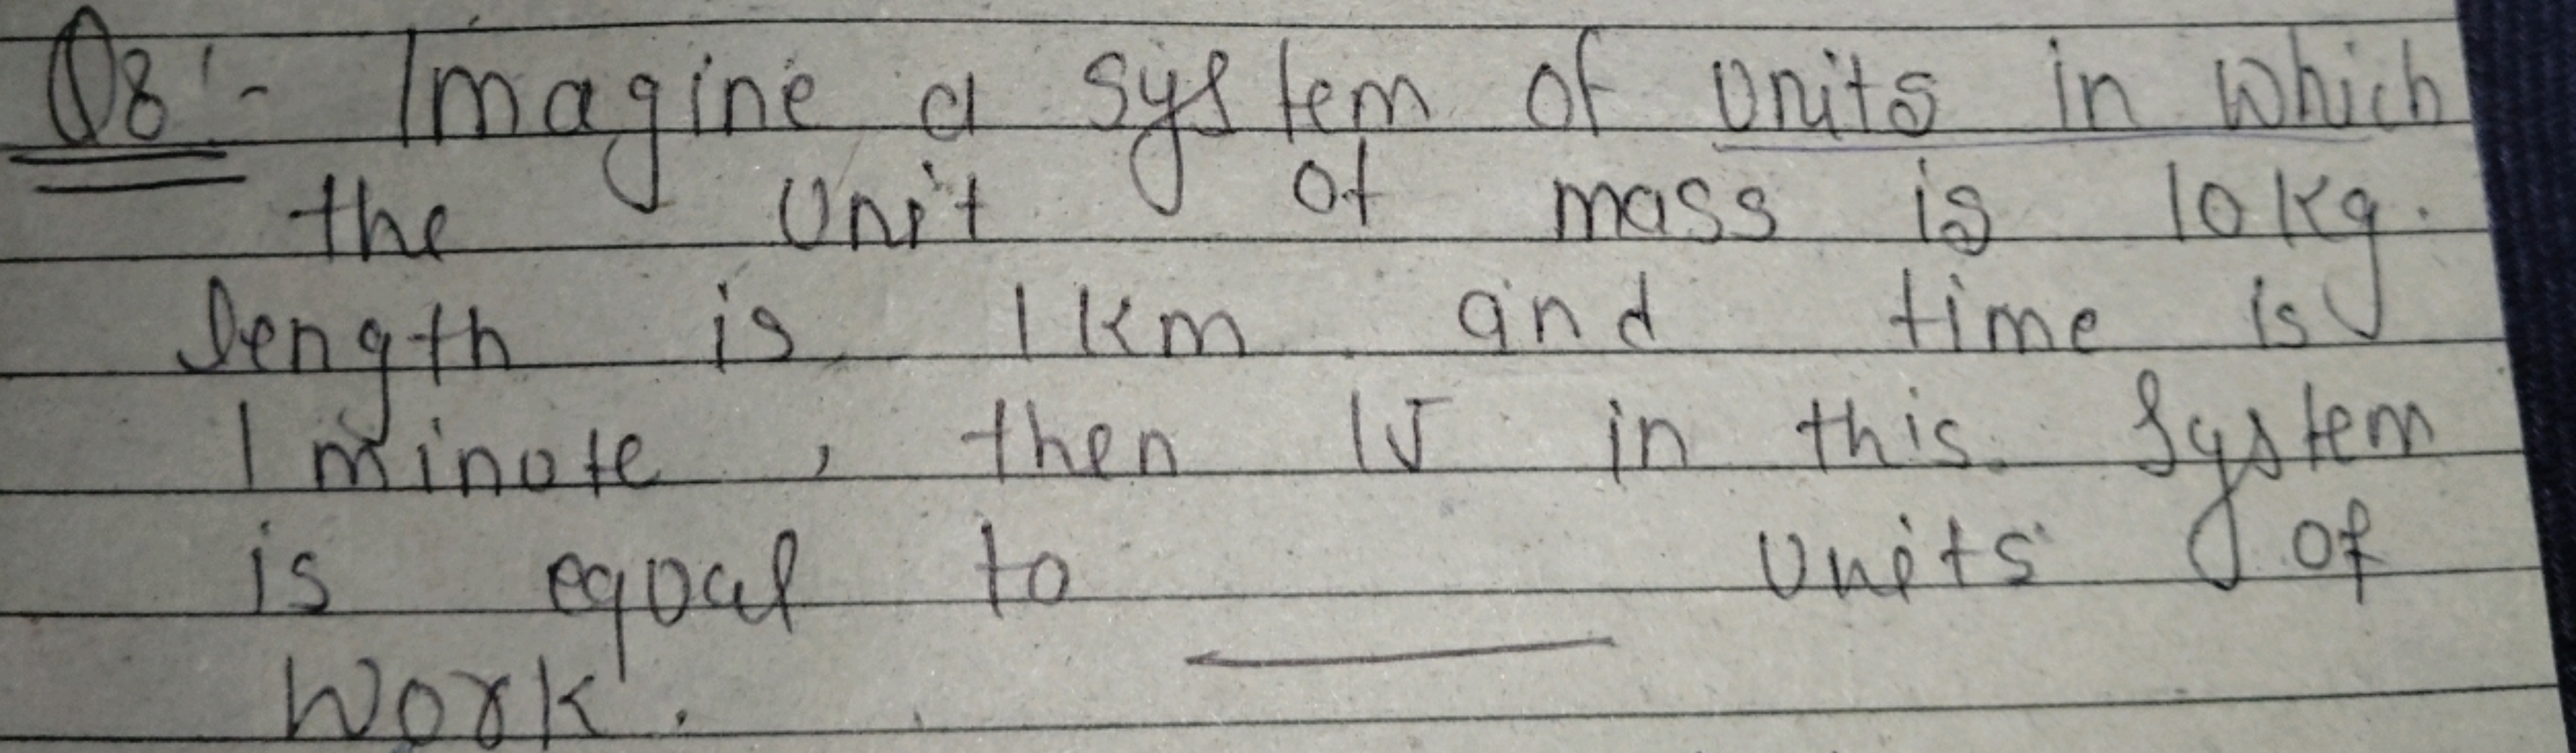 Q8:- Imagine a system of units in which
the unit of mass is 10kg.
length is 1km and time is
1 minute, then 1J in this system
is equal to ______ units of
work.